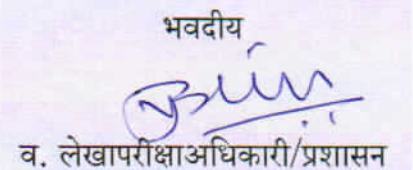 भवदीय
व. लेखापरीक्षाअधिकारी/प्रशासन